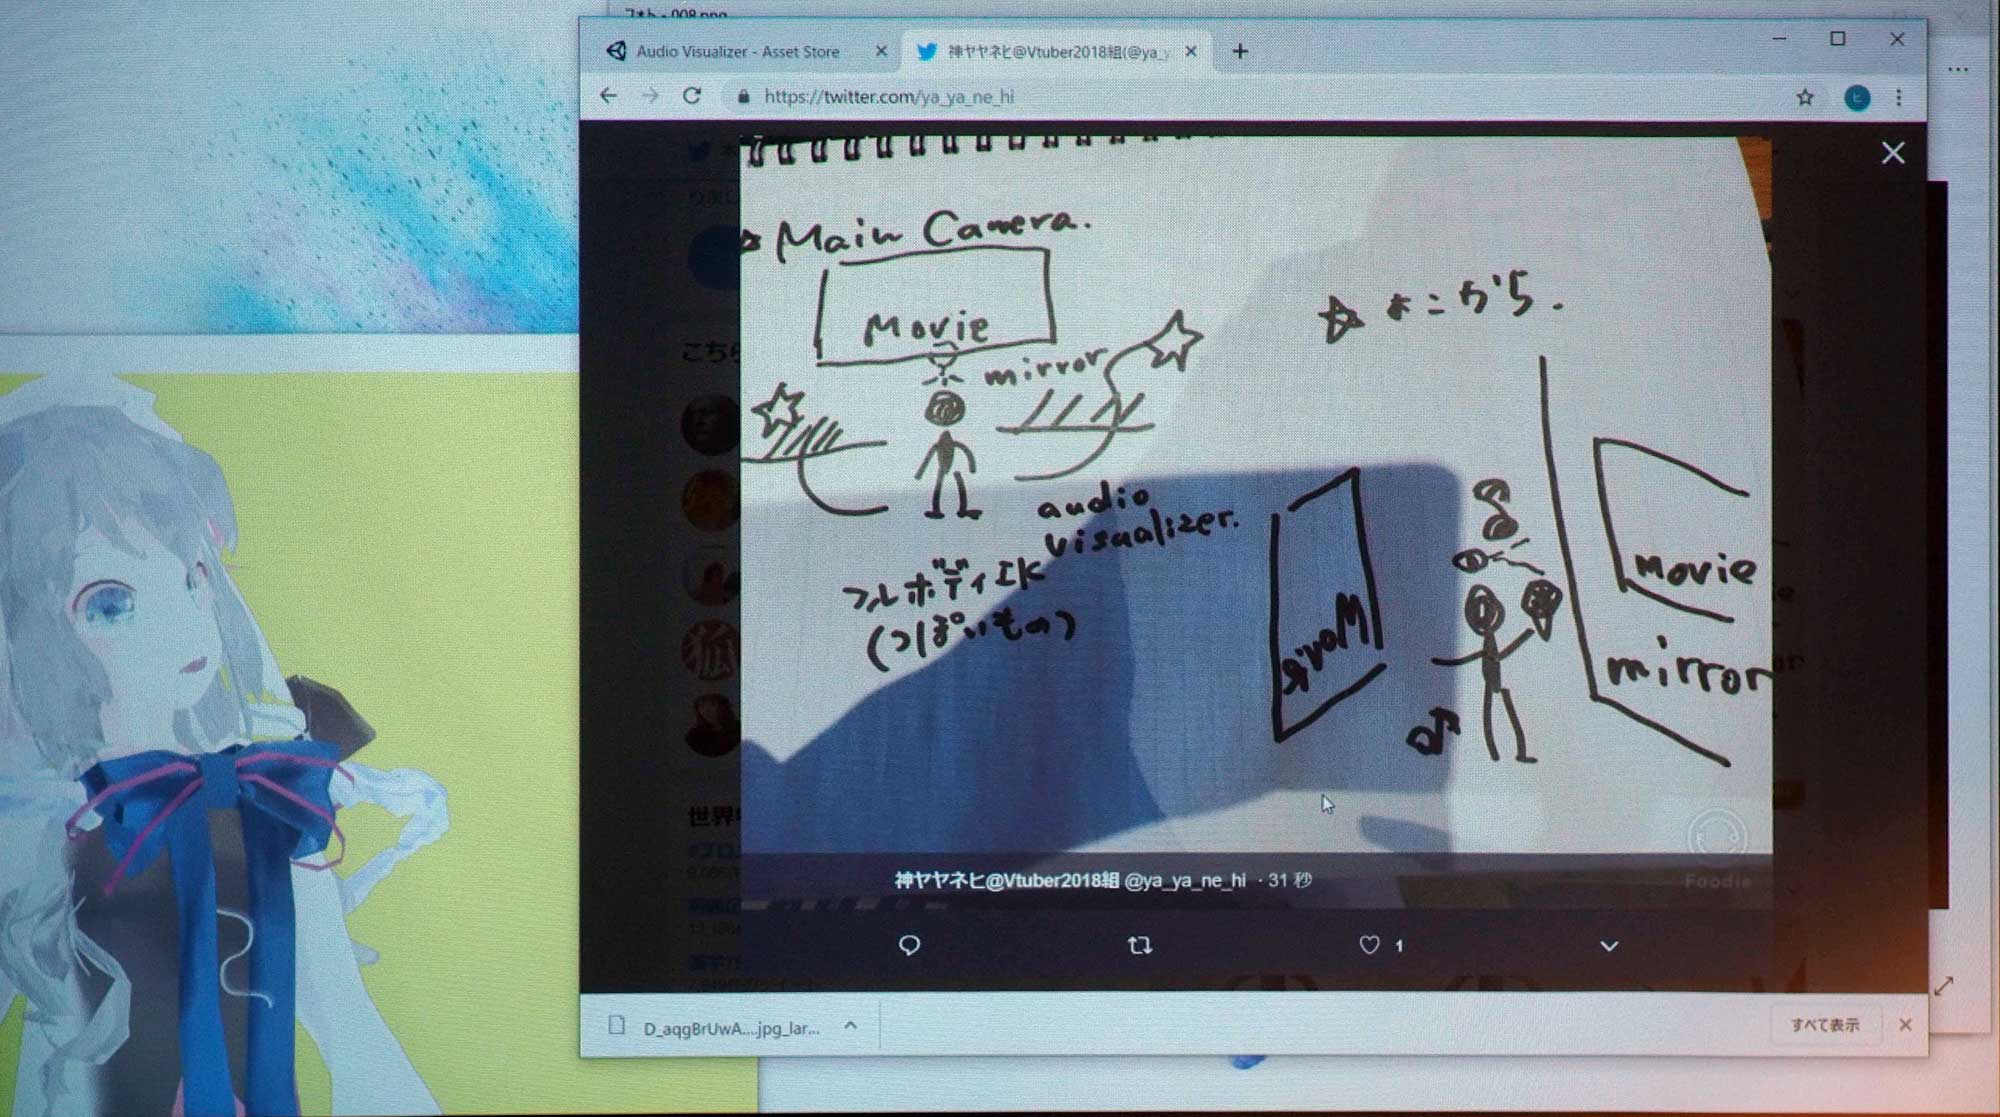 フォト - 008.png
Audio Visualizer - Asset Store
神ヤヤネヒ@Vtuber2018組(@ya_y
https://twitter.com/ya_ya_ne_hi
ヒ
Main Camera.
Movie
mirror
audio
visualizer.
フルボディIK
(っぽいもの)
よこから.
Movie
mirror
Movie
こちら
世界中
Foodie
神ヤヤネヒ@Vtuber2018組 @ya_ya_ne_hi · 31 秒
1
D_aqgBrUwA....jpg_lar...
すべて表示